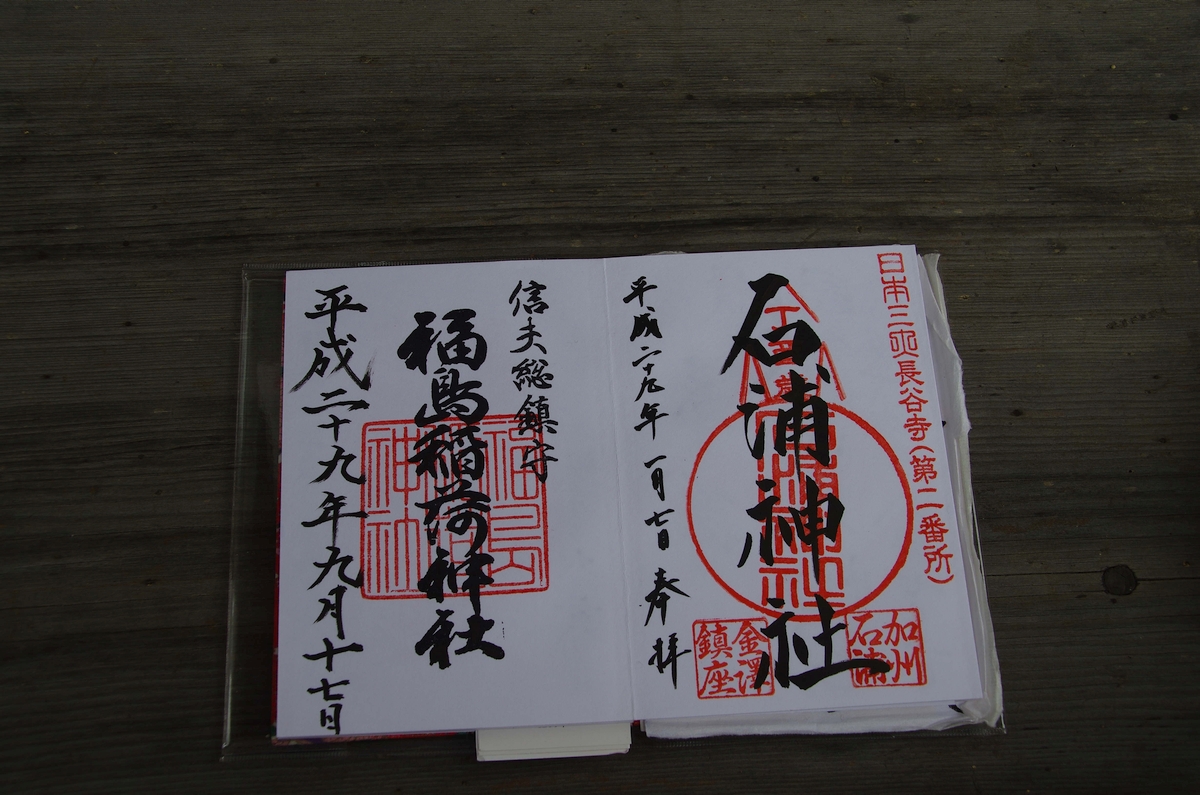 日本三所長谷寺(第二番所)
石浦神社
加州
石浦
金澤
鎮座
平成二十九年一月七日 奉拝
信夫総鎮守
福島稲荷神社
平成二十九年九月十七日